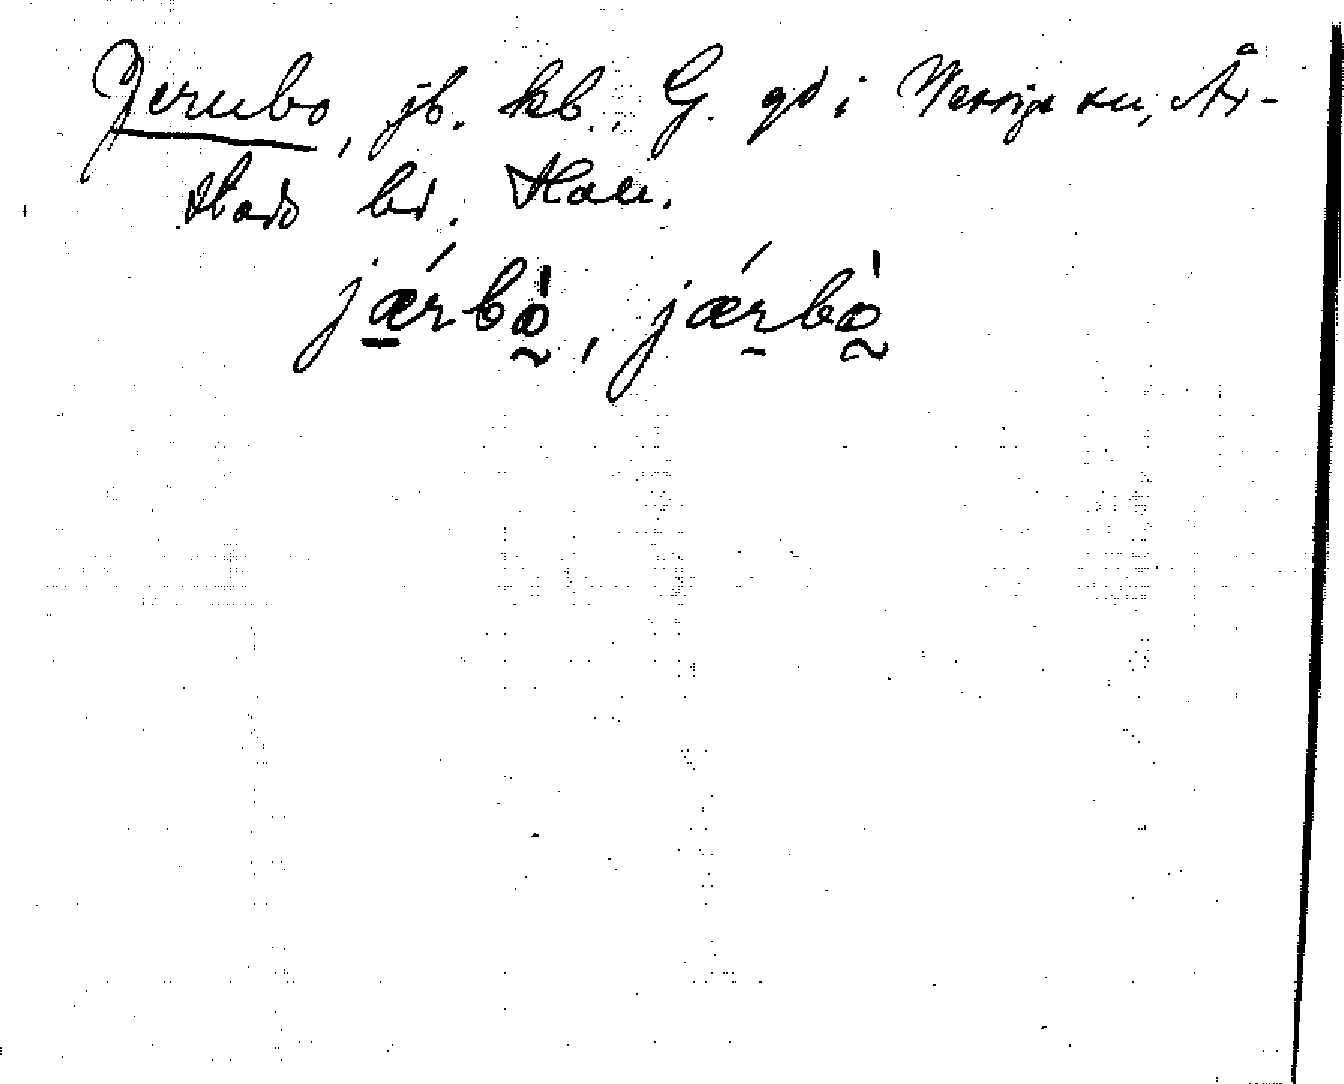 Jerubo, jb. kb., G. gd i Norrige sn, År-
stads hd. Hall.
járbò, járbò